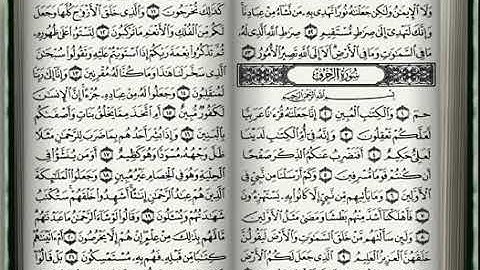 ولا الإيمن ولكن جعلنه نورا نهدي به من نشاء من عبادنا
وإنك لتهدي إلى صرط مستقيم ٥٢ صرط الله الذي له
ما في السموت وما في الأرض ألا إلى الله تصير الأمور ٥٣
سورة الزخرف
بسم الله الرحمن الرحيم
حم ١ والكتب المبين ٢ إنا جعلنه قرءنا عربيا
لعلكم تعقلون ٣ وإنه في أم الكتب لدينا
لعلي حكيم ٤ أفنضرب عنكم الذكر صفحا
أن كنتم قوما مسرفين ٥ وكم أرسلنا من نبي في
الأولين ٦ وما يأتيهم من نبي إلا كانوا به يستهزءون ٧
فأهلكنا أشد منهم بطشا ومضى مثل الأولين ٨
ولئن سألتهم من خلق السموت والأرض ليقولن
كذلك تخرجون ١١ والذي خلق الأزوج كلها وجعل
لكم من الفلك والأنعم ما تركبون ١٢ لتستوا على ظهوره
ثم تذكروا نعمة ربكم إذا استويتم عليه وتقولوا سبحن
الذي سخر لنا هذا وما كنا له مقرنين ١٣ وإنا إلى ربنا
لمنقلبون ١٤ وجعلوا له من عباده جزءا إن الإنسن
لكفور مبين ١٥ أم اتخذ مما يخلق بنات وأصفىكم
بالبنين ١٦ وإذا بشر أحدهم بما ضرب للرحمن مثلا
ظل وجهه مسودا وهو كظيم ١٧ أومن ينشؤا في
الحلية وهو في الخصام غير مبين ١٨ وجعلوا الملئكة
الذين هم عبد الرحمن إنثا أشهدوا خلقهم ستكتب
شهدتهم ويسئلون ١٩ وقالوا لو شاء الرحمن ما عبدنهم
ما لهم بذلك من علم إن هم إلا يخرصون ٢٠ أم ءاتينهم
كتبا من قبله فهم به مستمسكون ٢١ بل قالوا